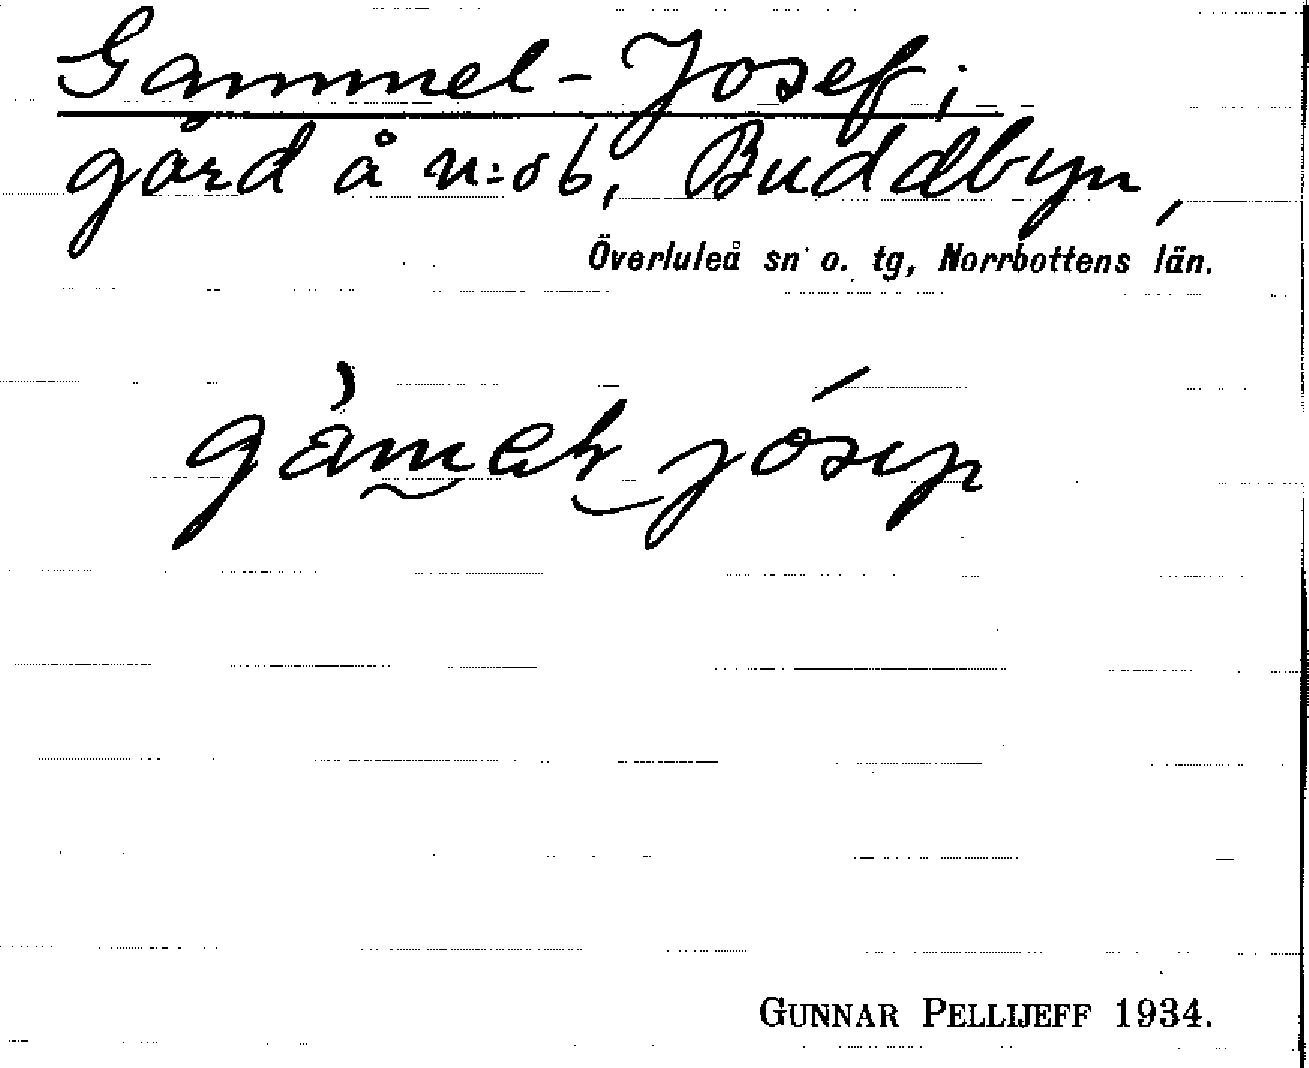 Gammel-Josef;
gård å n:o 6, Buddbyn,
Överluleå sn o. tg, Norrbottens län.
GUNNAR PELLIJEFF 1934.